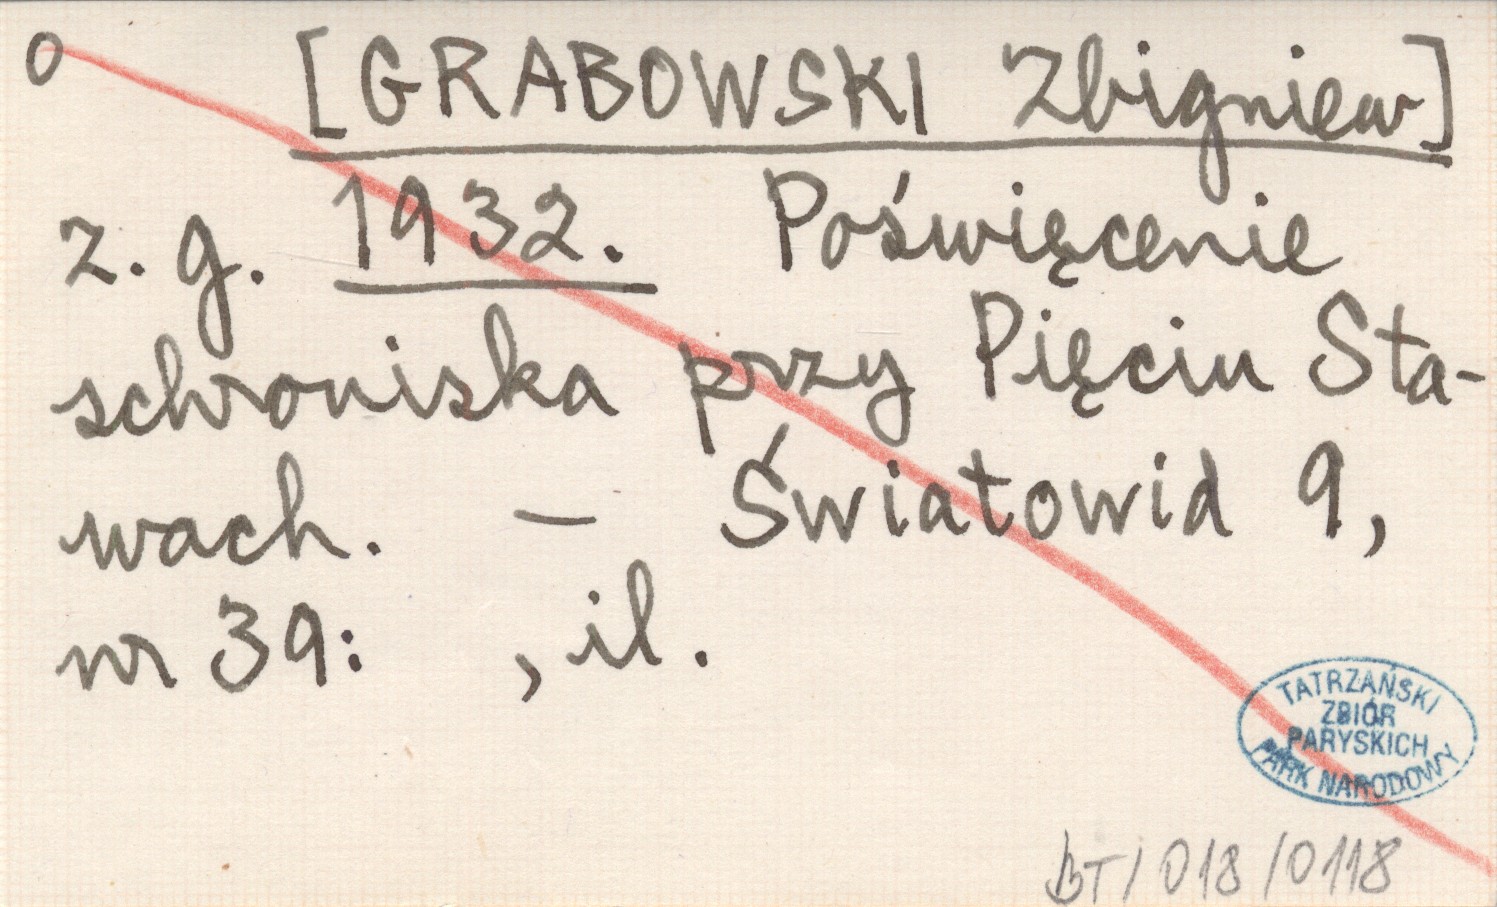 0 [GRABOWSKI Zbigniew]
z. g. 1932. Poświęcenie
schroniska przy Pięciu Sta-
wach. – Światowid 9,
nr 39: , il.
TATRZAŃSKI
ZBIÓR
PARYSKICH
PARK NARODOWY
BT/018/0118